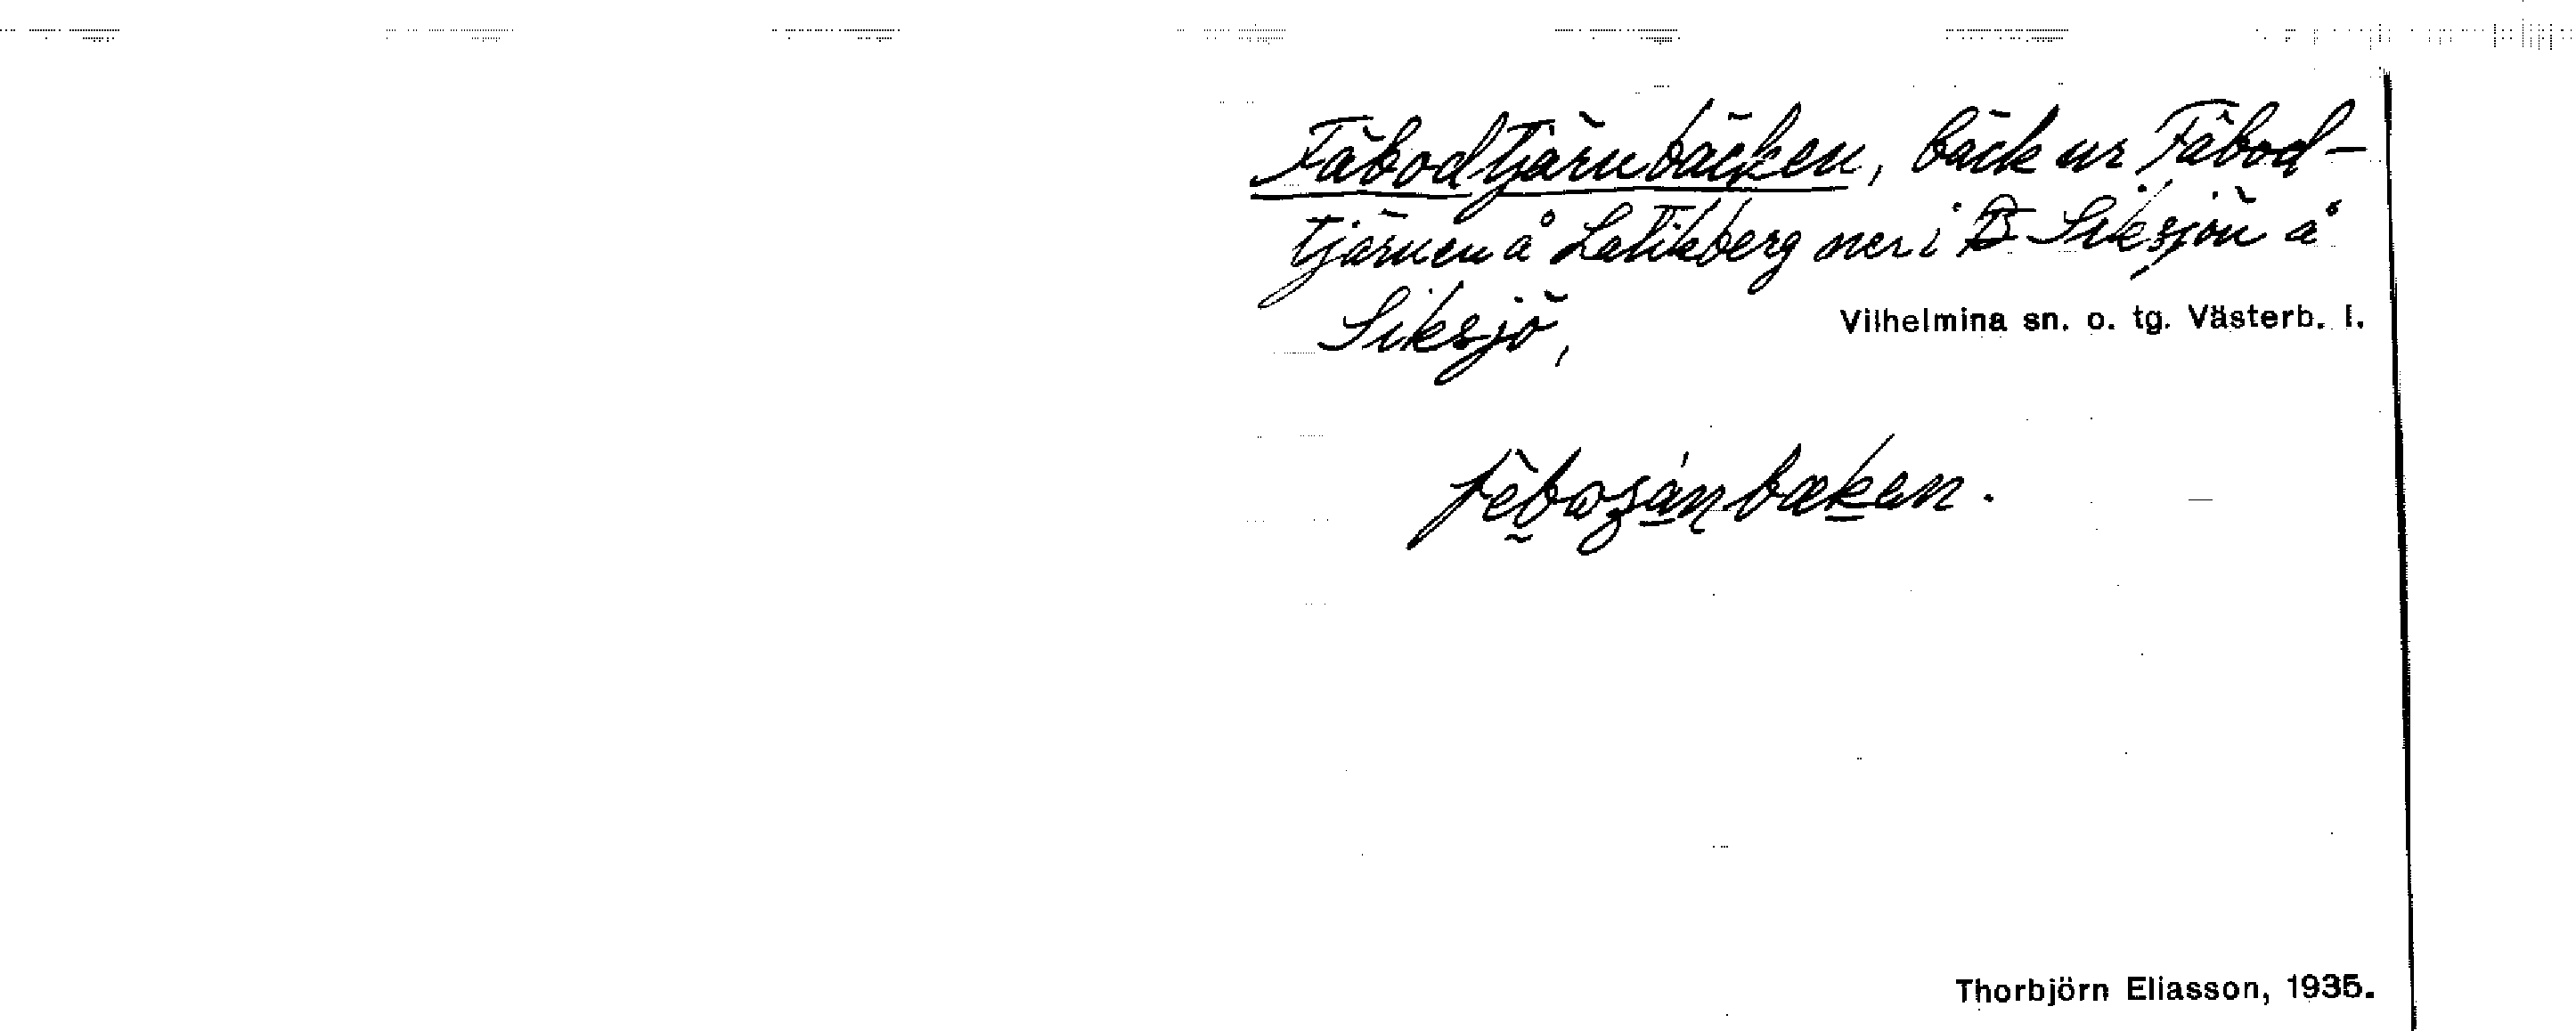 Fäbodtjärnbäcken, bäck ur Fäbod-
tjärnen å Latikberg ner i Siksjön å
Siksjö,
Vilhelmina sn. o. tg. Västerb. l.
Thorbjörn Eliasson, 1935.